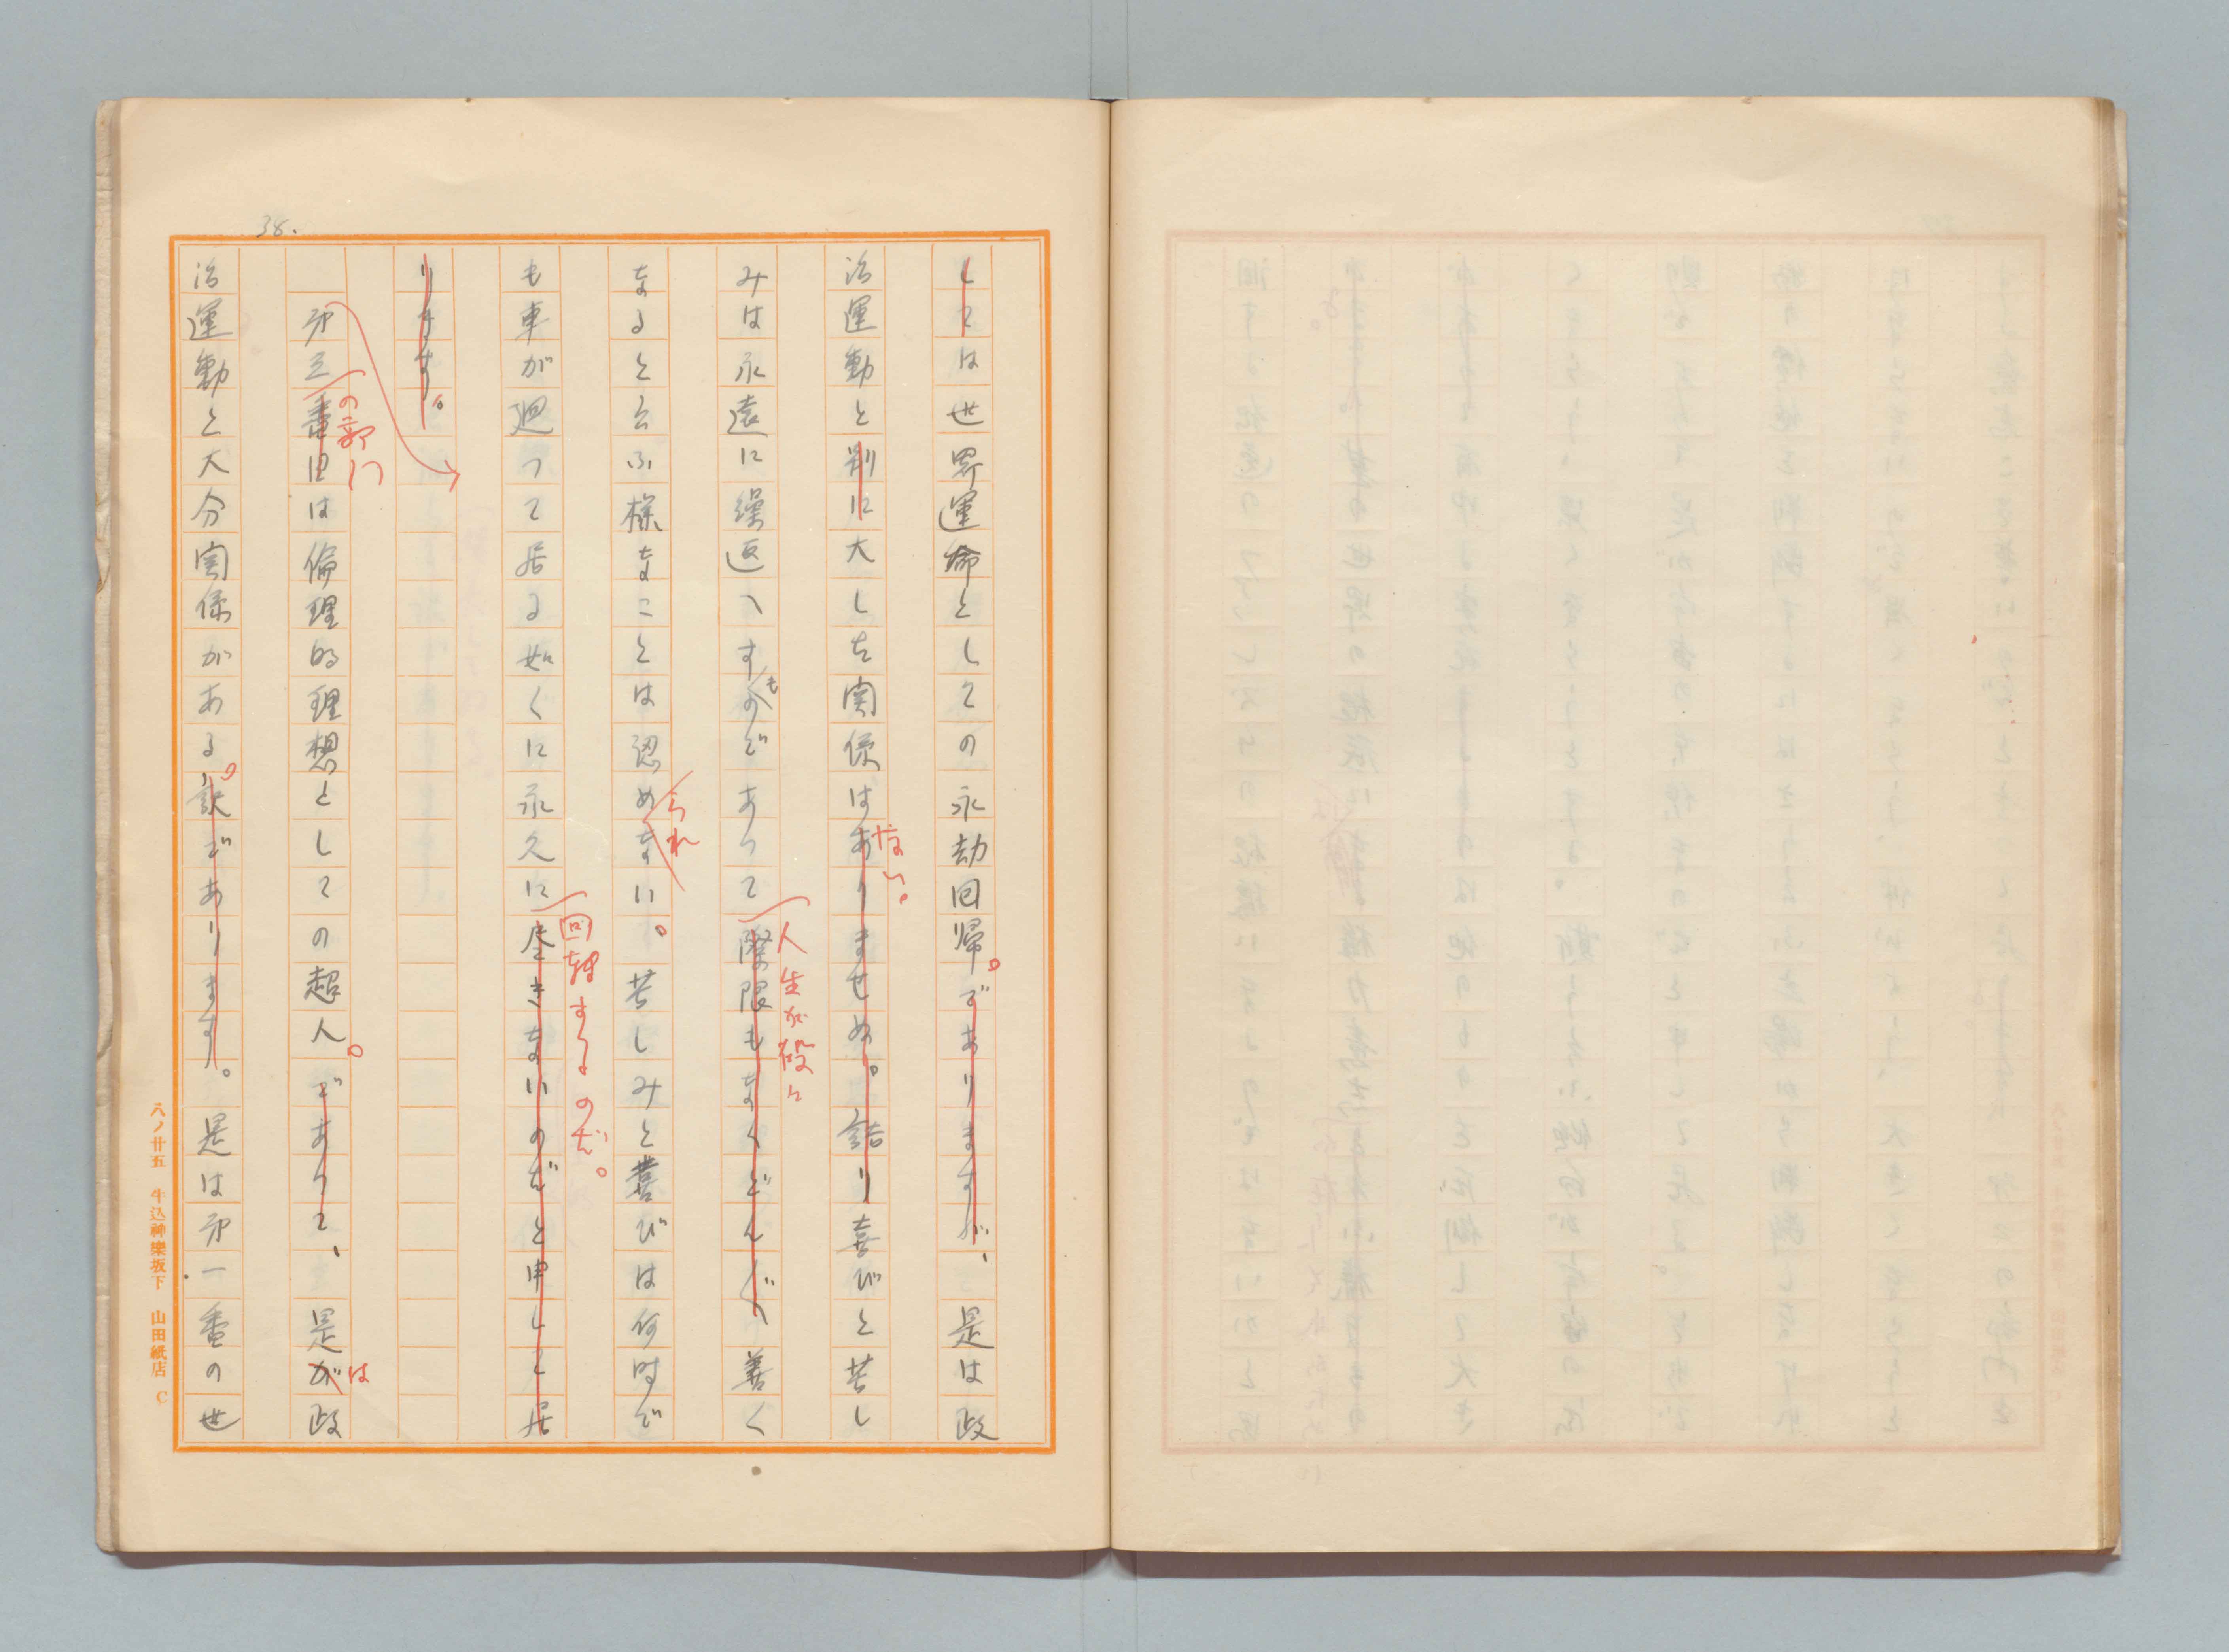 38.
しては世界運命としての永劫回帰。でありますが、是は政
治運動と別に大した関係はありませぬ。詰り喜びと苦し
ない。
みは永遠に繰返へすのであつて際限もなくどん〲善く
も
人生が段々
なると云ふ様なことは認めない。苦しみと喜びは何時で
られ
も車が廻つて居る如くに永久に尽きないのだと申して居
回転するのだ。
ります。
第三番目は倫理的理想としての超人。であつて、是が政
の部門
は
治運動と大分関係がある。訳であります。是は第一番の世
八ノ廿五 牛込神樂坂下 山田紙店 C